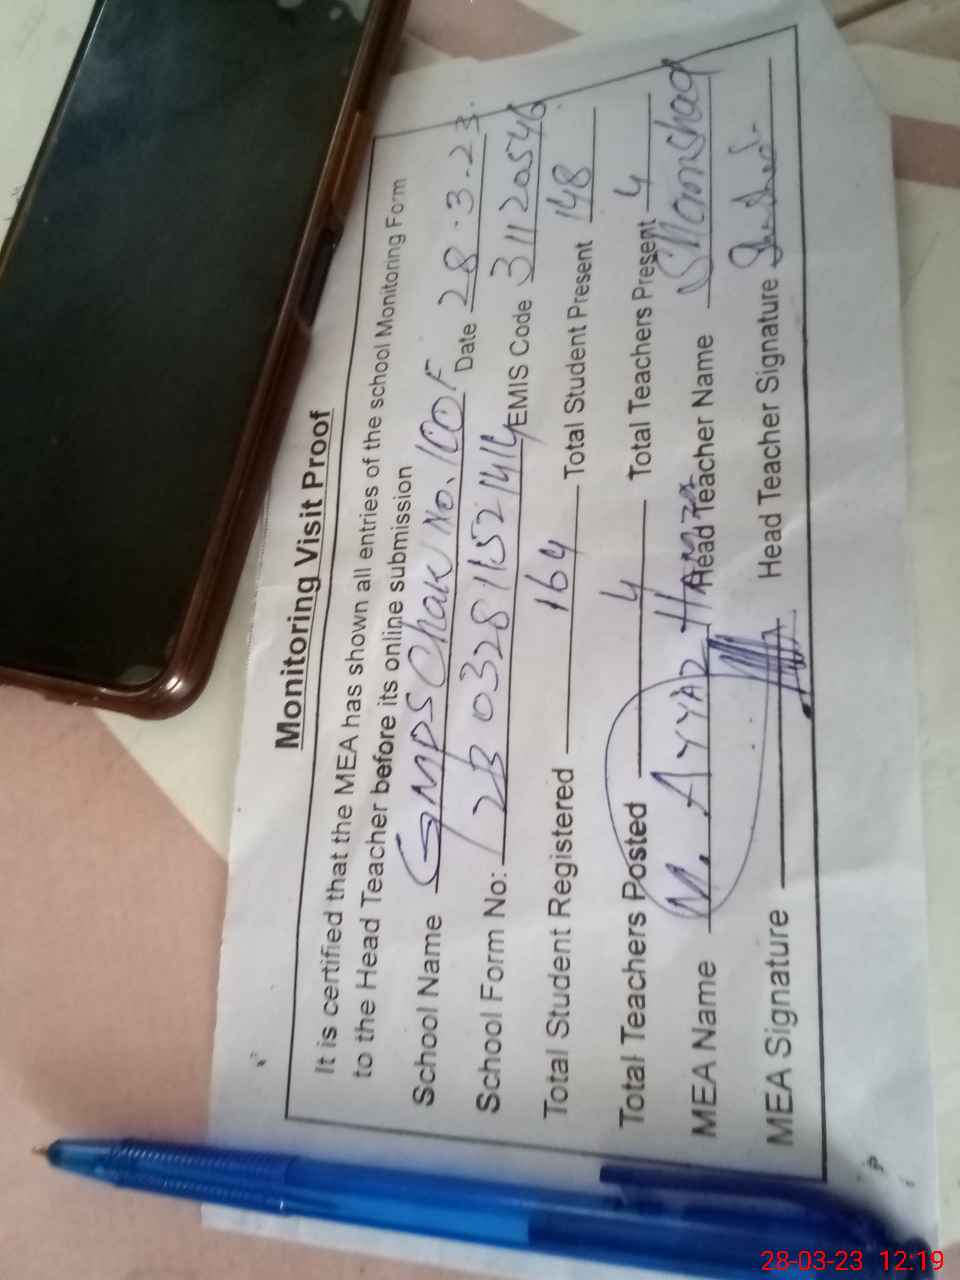 Monitoring Visit Proof
It is certified that the MEA has shown all entries of the school Monitoring Form
to the Head Teacher before its online submission
School Name GMPS Chak No. 100 F Date 28.3.23.
School Form No: 23032811521414 EMIS Code 31120546
Total Student Registered 164 Total Student Present 148
Total Teachers Posted 4 Total Teachers Present 4
MEA Name M. AYYAZ HAMZA Head Teacher Name Shamshad
MEA Signature Head Teacher Signature
28-03-23 12:19